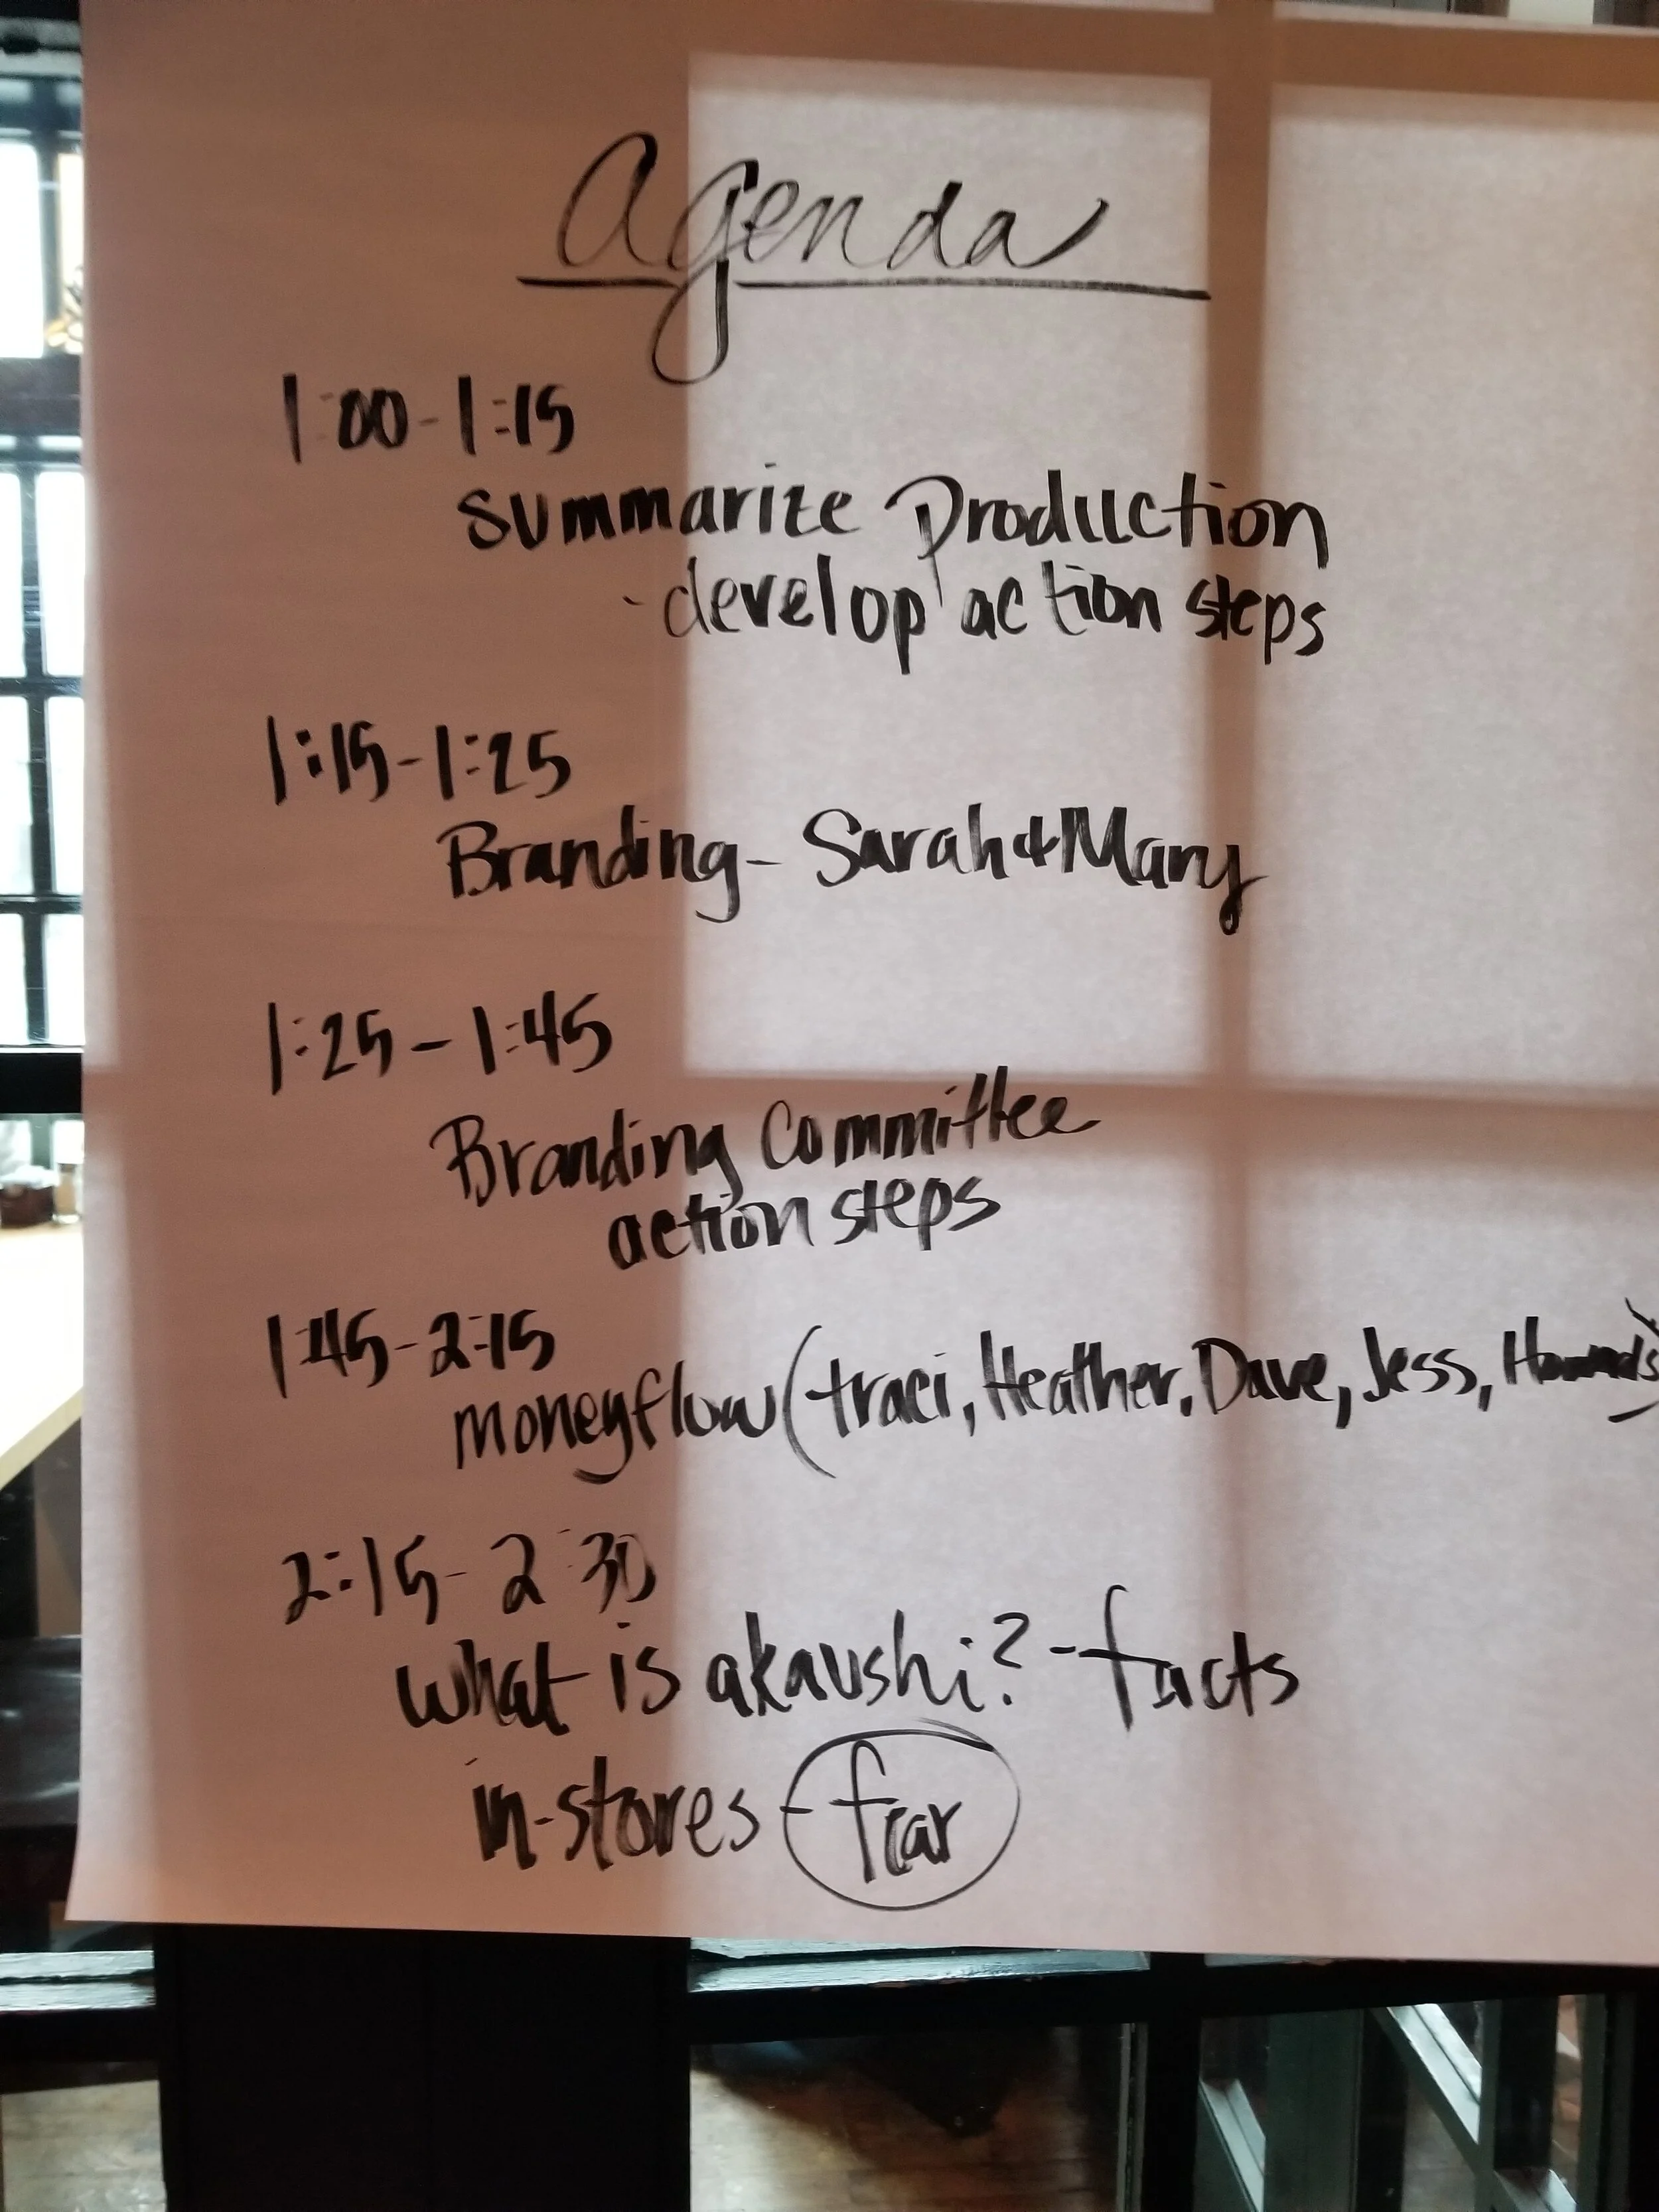 Agenda
1:00-1:15
summarize Production
-develop action steps
1:15-1:25
Branding- Sarah & Mary
1:25-1:45
Branding Committee
action steps
1:45-2:15
moneyflow (traci, Heather, Dave, Jess, )
2:15-2:30
what is akaushi? - facts
in-stores - fear